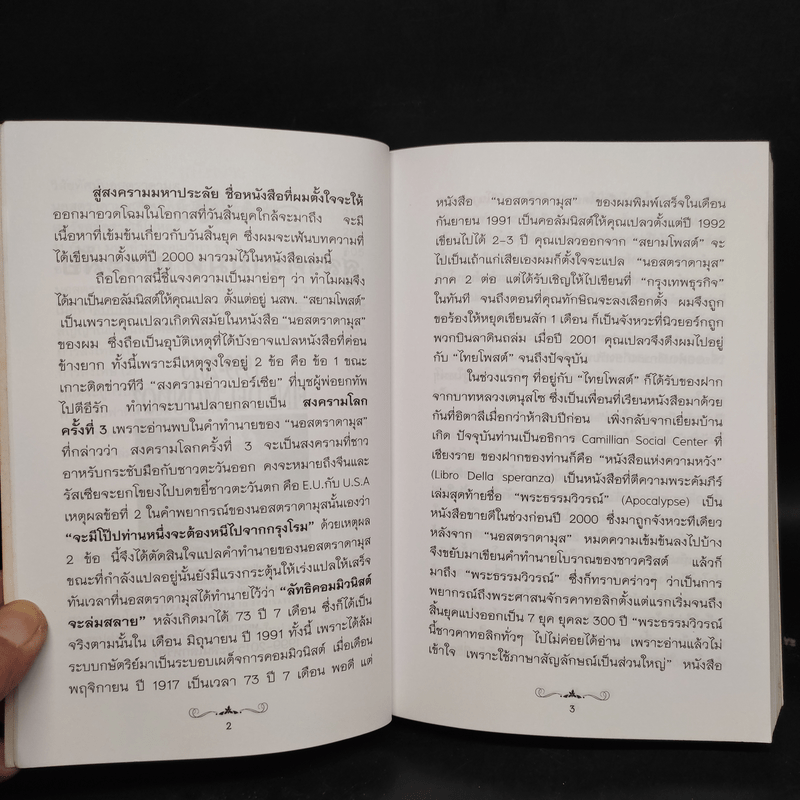 สู่สงครามมหาประลัย ชื่อหนังสือที่ผมตั้งใจจะให้
ออกมาอวดโฉมในโอกาสที่วันสิ้นยุคใกล้จะมาถึง จะมี
เนื้อหาที่เข้มข้นเกี่ยวกับวันสิ้นยุค ซึ่งผมจะเฟ้นบทความที่
ได้เขียนมาตั้งแต่ปี 2000 มารวมไว้ในหนังสือเล่มนี้
ถือโอกาสนี้ชี้แจงความเป็นมาย่อๆ ว่า ทำไมผมจึง
ได้มาเป็นคอลัมนิสต์ให้คุณเปลว ตั้งแต่อยู่ นสพ. "สยามโพสต์"
เป็นเพราะคุณเปลวเกิดพิสมัยในหนังสือ "นอสตราดามุส"
ของผม ซึ่งถือเป็นอุบัติเหตุที่ได้บังอาจแปลหนังสือที่ค่อน
ข้างยาก ทั้งนี้เพราะมีเหตุจูงใจอยู่ 2 ข้อ คือ ข้อ 1 ขณะ
เกาะติดข่าวทีวี "สงครามอ่าวเปอร์เซีย" ที่บุชผู้พ่อยกทัพ
ไปตีอีรัก ทำท่าจะบานปลายกลายเป็น สงครามโลก
ครั้งที่ 3 เพราะอ่านพบในคำทำนายของ "นอสตราดามุส"
ที่กล่าวว่า สงครามโลกครั้งที่ 3 จะเป็นสงครามที่ชาว
อาหรับกระชับมือกับชาวตะวันออก คงจะหมายถึงจีนและ
รัสเซียจะยกโขยงไปบดขยี้ชาวตะวันตก คือ E.U.กับ U.S.A
เหตุผลข้อที่ 2 ในคำพยากรณ์ของนอสตราดามุสนั้นเองว่า
"จะมีโป๊ปท่านหนึ่งจะต้องหนีไปจากกรุงโรม" ด้วยเหตุผล
2 ข้อ นี้จึงได้ตัดสินใจแปลคำทำนายของนอสตราดามุส
ขณะที่กำลังแปลอยู่นั้นยังมีแรงกระตุ้นให้เร่งแปลให้เสร็จ
ทันเวลาที่นอสตราดามุสได้ทำนายไว้ว่า "ลัทธิคอมมิวนิสต์
จะล่มสลาย" หลังเกิดมาได้ 73 ปี 7 เดือน ซึ่งก็ได้เป็น
จริงตามนั้นใน เดือน มิถุนายน ปี 1991 ทั้งนี้ เพราะได้ล้ม
ระบบกษัตริย์มาเป็นระบอบเผด็จการคอมมิวนิสต์ เมื่อเดือน
พฤศจิกายน ปี 1917 เป็นเวลา 73 ปี 7 เดือน พอดี แต่
2
หนังสือ "นอสตราดามุส" ของผมพิมพ์เสร็จในเดือน
กันยายน 1991 เป็นคอลัมนิสต์ให้คุณเปลวตั้งแต่ปี 1992
เขียนไปได้ 2-3 ปี คุณเปลวออกจาก "สยามโพสต์" จะ
ไปเป็นเถ้าแก่เสียเองผมก็ตั้งใจจะแปล "นอสตราดามุส"
ภาค 2 ต่อ แต่ได้รับเชิญให้ไปเขียนที่ "กรุงเทพธุรกิจ"
ในทันที จนถึงตอนที่คุณทักษิณจะลงเลือกตั้ง ผมจึงถูก
ขอร้องให้หยุดเขียนสัก 1 เดือน ก็เป็นจังหวะที่นิวยอร์กถูก
พวกบินลาดินถล่ม เมื่อปี 2001 คุณเปลวจึงดึงผมไปอยู่
กับ "ไทยโพสต์" จนถึงปัจจุบัน
ในช่วงแรกๆ ที่อยู่กับ "ไทยโพสต์" ก็ได้รับของฝาก
จากบาทหลวงเตนุสโซ ซึ่งเป็นเพื่อนที่เรียนหนังสือมาด้วย
กันที่อิตาลีเมื่อกว่าห้าสิบปีก่อน เพิ่งกลับจากเยี่ยมบ้าน
เกิด ปัจจุบันท่านเป็นอธิการ Camillian Social Center ที่
เชียงราย ของฝากของท่านก็คือ "หนังสือแห่งความหวัง"
(Libro Della speranza) เป็นหนังสือที่ตีความพระคัมภีร์
เล่มสุดท้ายชื่อ "พระธรรมวิวรณ์" (Apocalypse) เป็น
หนังสือขายดีในช่วงก่อนปี 2000 ซึ่งมาถูกจังหวะทีเดียว
หลังจาก "นอสตราดามุส" หมดความเข้มข้นลงไปบ้าง
จึงขยับมาเขียนคำทำนายโบราณของชาวคริสต์ แล้วก็
มาถึง "พระธรรมวิวรณ์" ซึ่งก็ทราบคร่าวๆ ว่าเป็นการ
พยากรณ์ถึงพระศาสนจักรคาทอลิกตั้งแต่แรกเริ่มจนถึง
สิ้นยุคแบ่งออกเป็น 7 ยุค ยุคละ 300 ปี "พระธรรมวิวรณ์
นี้ชาวคาทอลิกทั่วๆ ไปไม่ค่อยได้อ่าน เพราะอ่านแล้วไม่
เข้าใจ เพราะใช้ภาษาสัญลักษณ์เป็นส่วนใหญ่" หนังสือ
3